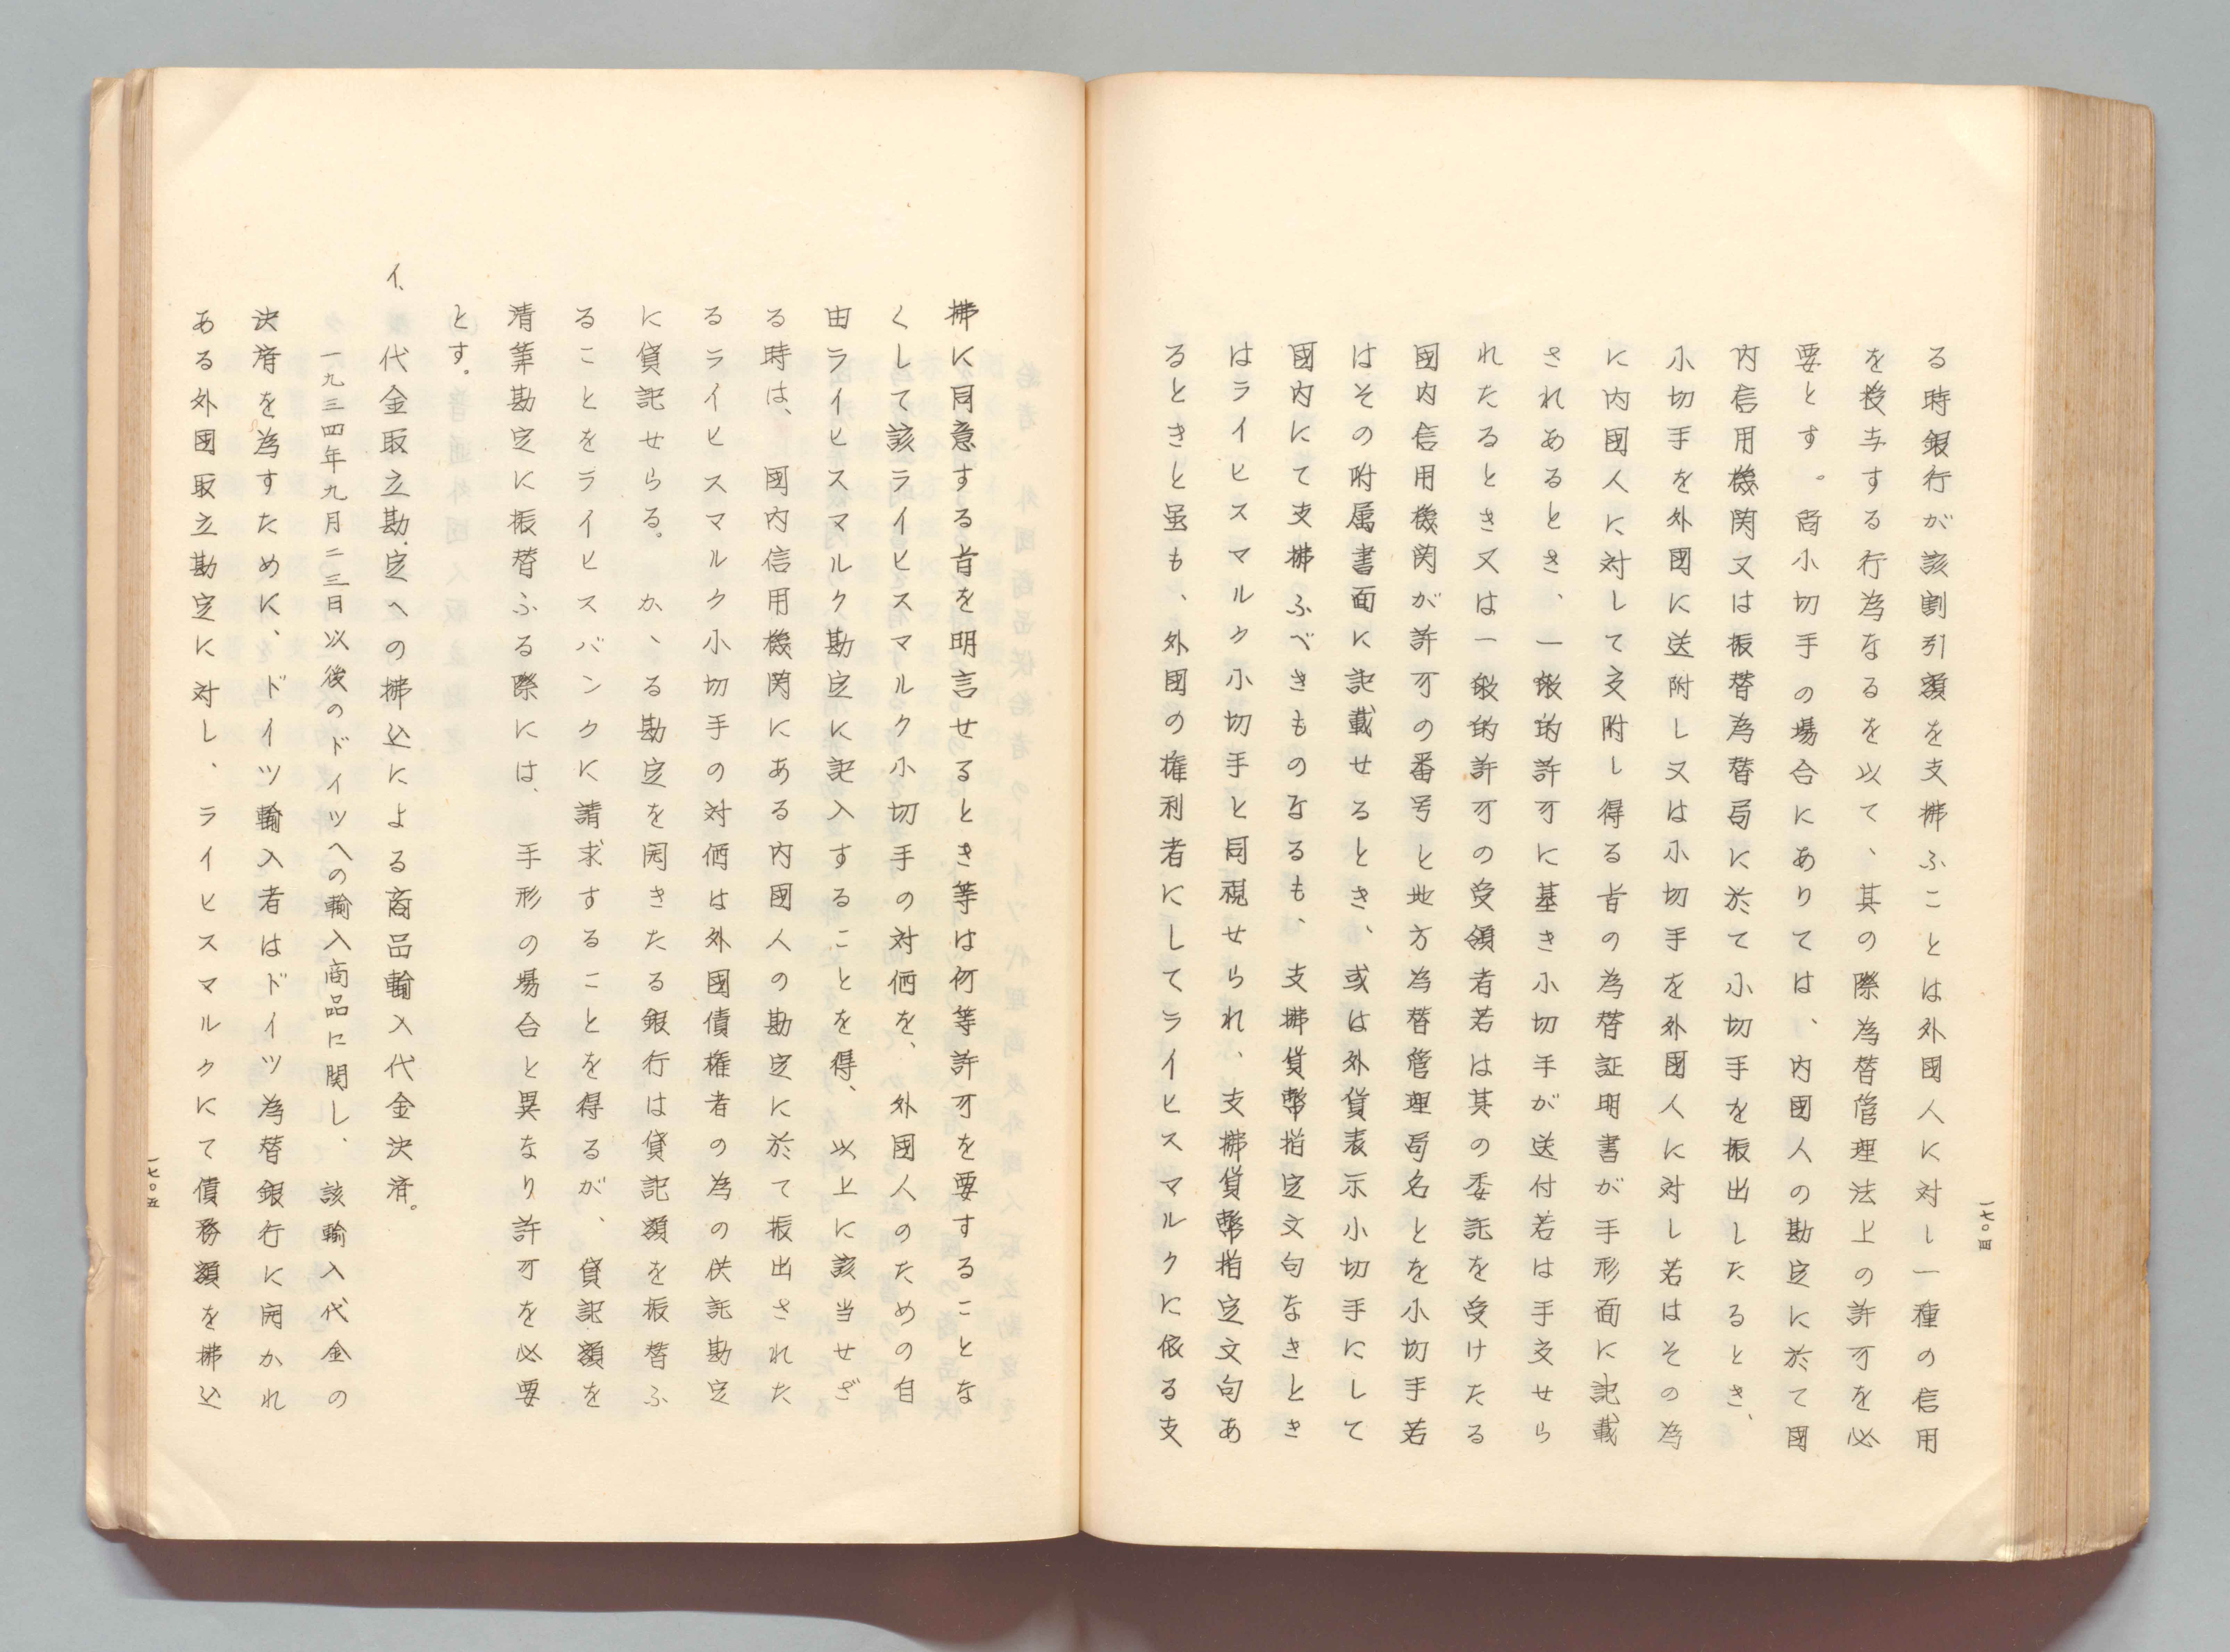 る時銀行が該割引額を支拂ふことは外國人に対し一種の信用
を授与する行為なるを以て、其の際為替管理法上の許可を必
要とす。尚小切手の場合にありては、内國人の勘定に於て國
内信用機関又は振替為替局に於て小切手を振出したるとき、
小切手を外國に送附し又は小切手を外國人に対し若はその為
に内國人に対して交附し得る旨の為替証明書が手形面に記載
されあるとき、一般的許可に基き小切手が送付若は手交せら
れたるとき又は一般的許可の受領者若は其の委託を受けたる
國内信用機関が許可の番号と地方為替管理局名とを小切手若
はその附属書面に記載せるとき、或は外貨表示小切手にして
國内にて支拂ふべきものなるも、支拂貨幣指定文句なきとき
はライヒスマルク小切手と同視せられ、支拂貨幣指定文句あ
るときと虽も、外國の権利者にしてライヒスマルクに依る支
一七〇四
拂に同意する旨を明言せるとき等は何等許可を要することな
くして該ライヒスマルク小切手の対価を、外國人のための自
由ライヒスマルク勘定に記入することを得、以上に該当せざ
る時は、國内信用機関にある内國人の勘定に於て振出された
るライヒスマルク小切手の対価は外國債権者の為の供託勘定
に貸記せらる。かゝる勘定を開きたる銀行は貸記額を振替ふ
ることをライヒスバンクに請求することを得るが、貸記額を
清算勘定に振替ふる際には、手形の場合と異なり許可を必要
とす。
イ、代金取立勘定への拂込による商品輸入代金決済。
一九三四年九月二三日以後のドイツへの輸入商品に関し、該輸入代金の
決済を為すために、ドイツ輸入者はドイツ為替銀行に開かれ
ある外國取立勘定に対し、ライヒスマルクにて債務額を拂込
一七〇五